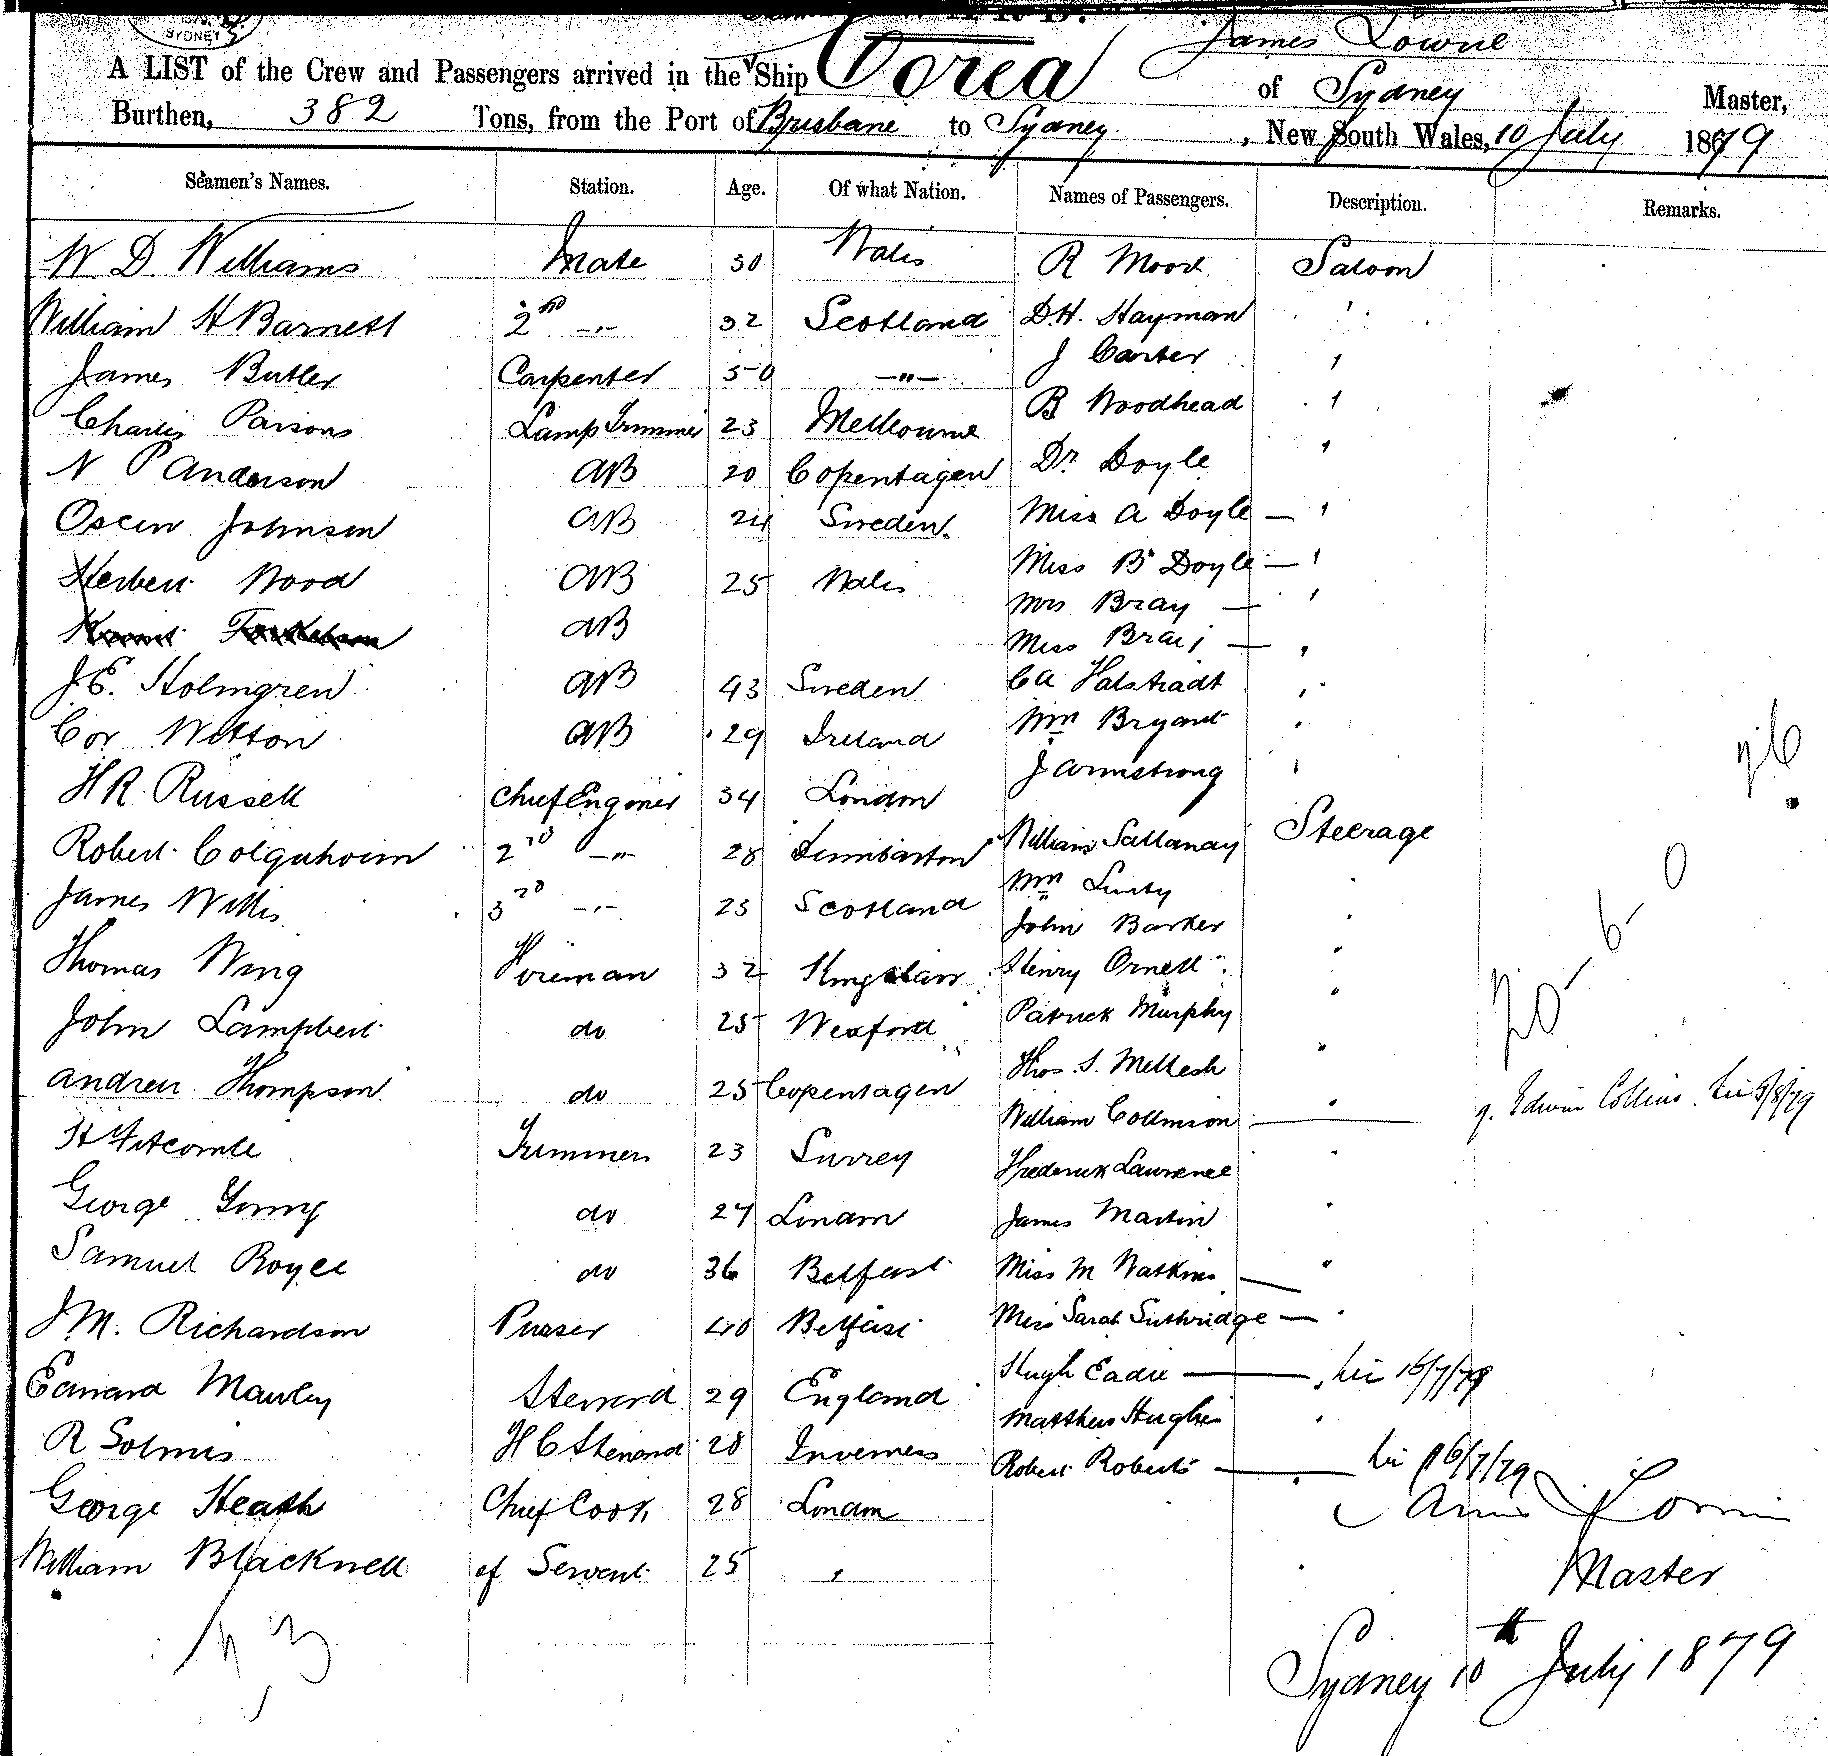 SYDNEY
James Lowrie
A LIST of the Crew and Passengers arrived in the Ship Corea of Sydney Master,
Burthen, 382 Tons, from the Port of Brisbane to Sydney, New South Wales, 10 July 1879
Seamen's Names. Station. Age. Of what Nation. Names of Passengers. Description. Remarks.
W D Williams Mate 30 Wales R Moor Saloon
William H Barnett 2nd -"- 32 Scotland D.H. Hayman "
James Butler Carpenter 50 -"- J Carter "
Charles Parsons Lamp Trimmer 23 Melbourne B Woodhead "
N P Anderson AB 20 Copenhagen Dr Doyle "
Oscar Johnson AB 24 Sweden Miss A Doyle — "
Herbert Wood AB 25 Wales Miss B Doyle — "
Mrs Bray — "
AB Miss Bray — "
J.E. Holmgren AB 43 Sweden CA Halstradt "
Cor Witton AB 29 Ireland Wm Bryant "
H R Russell Chief Engineer 34 London J Armstrong "
Robert Colquhoun 2nd -"- 28 Dumbarton William Sattanay Steerage
James Willis 3rd -"- 25 Scotland Wm Lusty "
John Barker "
Thomas Wing Fireman 32 Henry Ornell "
John Lambert do 25 Wexford Patrick Murphy "
Thos. S. Mellesh "
Andrew Thompson do 25 Copenhagen William Collinson — Edwin Collins
H Fitcomb Trimmer 23 Surrey Frederick Laurence "
George Young do 24 London James Martin "
Samuel Royce do 36 Belfast Miss M Watkins — "
J M. Richardson Purser 40 Belfast Miss Sarah Suthridge — "
Edward Manley Steward 29 England Hugh Eadie — " 15/7/79
Matthew Hughes "
R Solmis H C Steward 28 Inverness Robert Roberts — " 16/7/79
George Heath Chief Cook 28 London
William Blacknell of Servent 25 "
James Lowrie
Master
Sydney 10th July 1879